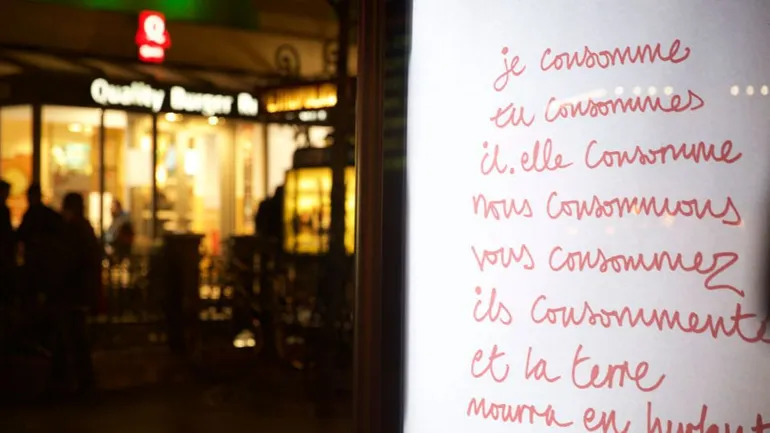 Quality Burger
je consomme
tu consommes
il.elle consomme
nous consommons
vous consommez
ils consomment
et la terre
mourra en hurlant